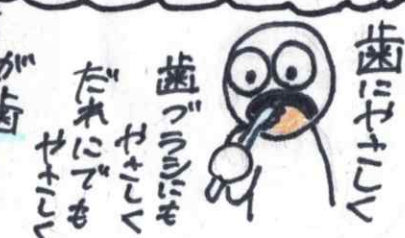 歯にやさしく
歯ブラシにも
やさしく
だれにでも
やさしく
が歯